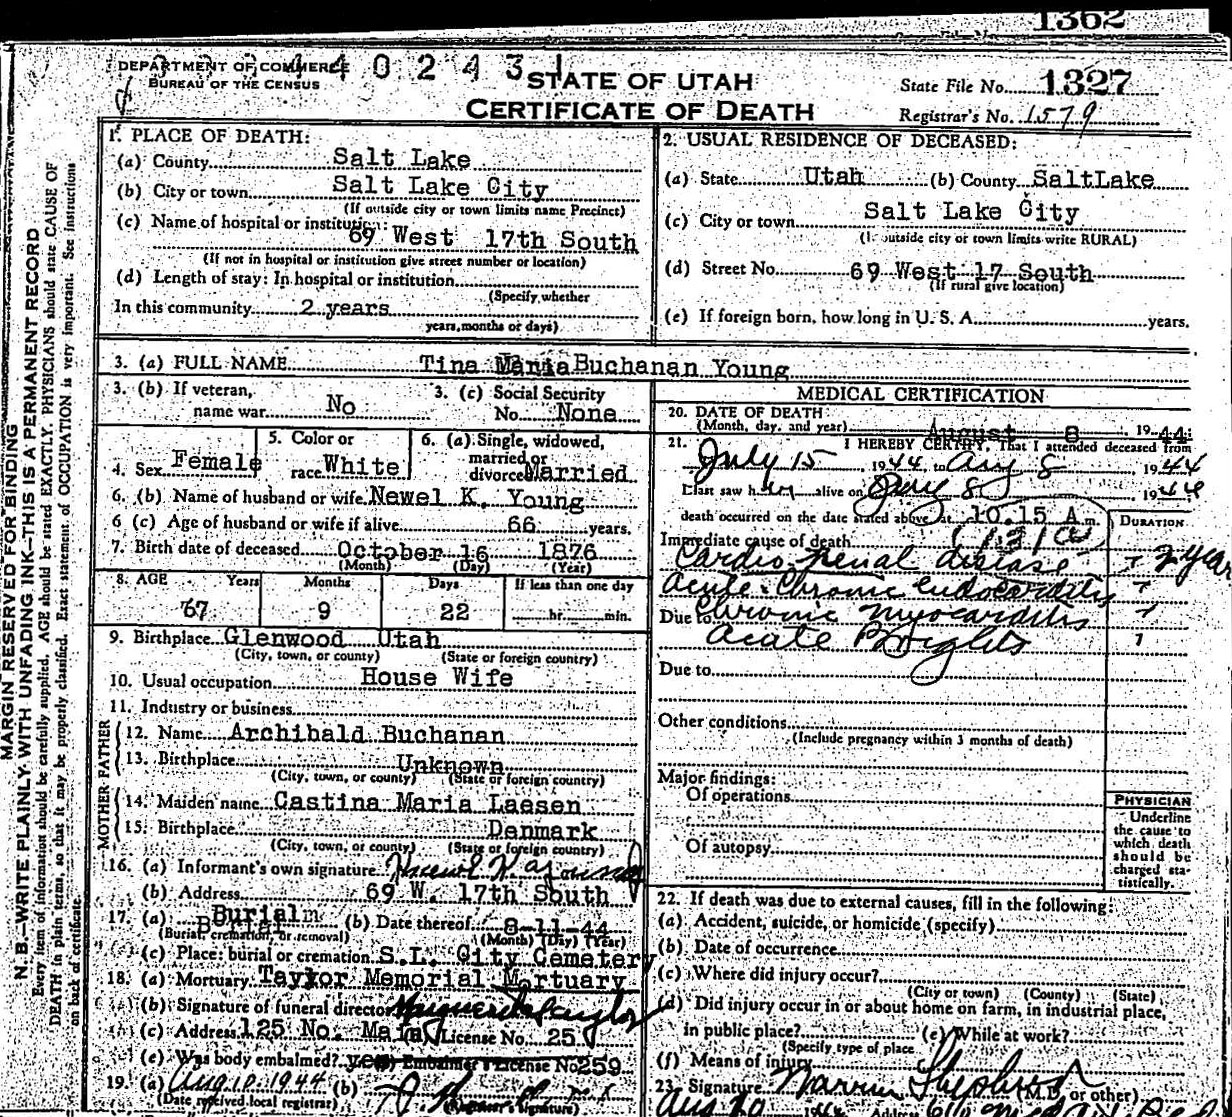 1362
DEPARTMENT OF COMMERCE
BUREAU OF THE CENSUS
402431
STATE OF UTAH
CERTIFICATE OF DEATH
State File No. 1327
Registrar's No. 1579
MARGIN RESERVED FOR BINDING
N. B.—WRITE PLAINLY WITH UNFADING INK—THIS IS A PERMANENT RECORD
Every item of information should be carefully supplied. AGE should be stated EXACTLY. PHYSICIANS should state CAUSE OF
DEATH in plain terms, so that it may be properly classified. Exact statement of OCCUPATION is very important. See instructions
on back of certificate.
1. PLACE OF DEATH:
(a) County Salt Lake
(b) City or town Salt Lake City
(If outside city or town limits name Precinct)
(c) Name of hospital or institution:
69 West 17th South
(If not in hospital or institution give street number or location)
(d) Length of stay: In hospital or institution
(Specify whether
In this community 2 years
years, months or days)
2. USUAL RESIDENCE OF DECEASED:
(a) State Utah (b) County SaltLake
(c) City or town Salt Lake City
(If outside city or town limits write RURAL)
(d) Street No. 69 West 17 South
(If rural give location)
(e) If foreign born, how long in U. S. A. years.
3. (a) FULL NAME Tina Maria Buchanan Young
3. (b) If veteran,
name war No
3. (c) Social Security
No. None
4. Sex Female
5. Color or
race White
6. (a) Single, widowed,
married or
divorced Married
6. (b) Name of husband or wife Newel K. Young
6 (c) Age of husband or wife if alive 66 years.
7. Birth date of deceased October 16 1876
(Month) (Day) (Year)
8. AGE Years Months Days If less than one day
67 9 22 hr. min.
9. Birthplace Glenwood Utah
(City, town, or county) (State or foreign country)
10. Usual occupation House Wife
11. Industry or business
MOTHER FATHER
12. Name Archibald Buchanan
13. Birthplace Unknown
(City, town, or county) (State or foreign country)
14. Maiden name Castina Maria Laesen
15. Birthplace Denmark
(City, town, or county) (State or foreign country)
16. (a) Informant's own signature Newel K. Young
(b) Address 69 W. 17th South
17. (a) Burial (b) Date thereof 8-11-44
(Burial, cremation, or removal) (Month) (Day) (Year)
(c) Place: burial or cremation S.L. City Cemetery
18. (a) Mortuary Taylor Memorial Mortuary
(b) Signature of funeral director Taylor
(c) Address 125 No. Main License No. 25
(e) Was body embalmed? yes Embalmer's License No 259
19. (a) Aug 10. 1944 (b)
(Date received local registrar) (Registrar's signature)
MEDICAL CERTIFICATION
20. DATE OF DEATH
(Month, day, and year) August 8 1944
21. I HEREBY CERTIFY, That I attended deceased from
July 15 1944 to Aug 8, 1944
I last saw her alive on 8, 1944
death occurred on the date stated above at 10.15 A m.
DURATION
Immediate cause of death 131a
Cardio renal disease 2 year
Acute - Chronic endocarditis "
Due to Chronic myocarditis "
Acute Brights
Due to
Other conditions
(Include pregnancy within 3 months of death)
Major findings:
Of operations
Of autopsy
PHYSICIAN
Underline
the cause to
which death
should be
charged sta-
tistically.
22. If death was due to external causes, fill in the following:
(a) Accident, suicide, or homicide (specify)
(b) Date of occurrence
(c) Where did injury occur?
(City or town) (County) (State)
(d) Did injury occur in or about home on farm, in industrial place,
in public place? (e) While at work?
(Specify type of place
(f) Means of injury
23. Signature Warren Shepherd (M.D. or other)
Aug 10 1944 Address